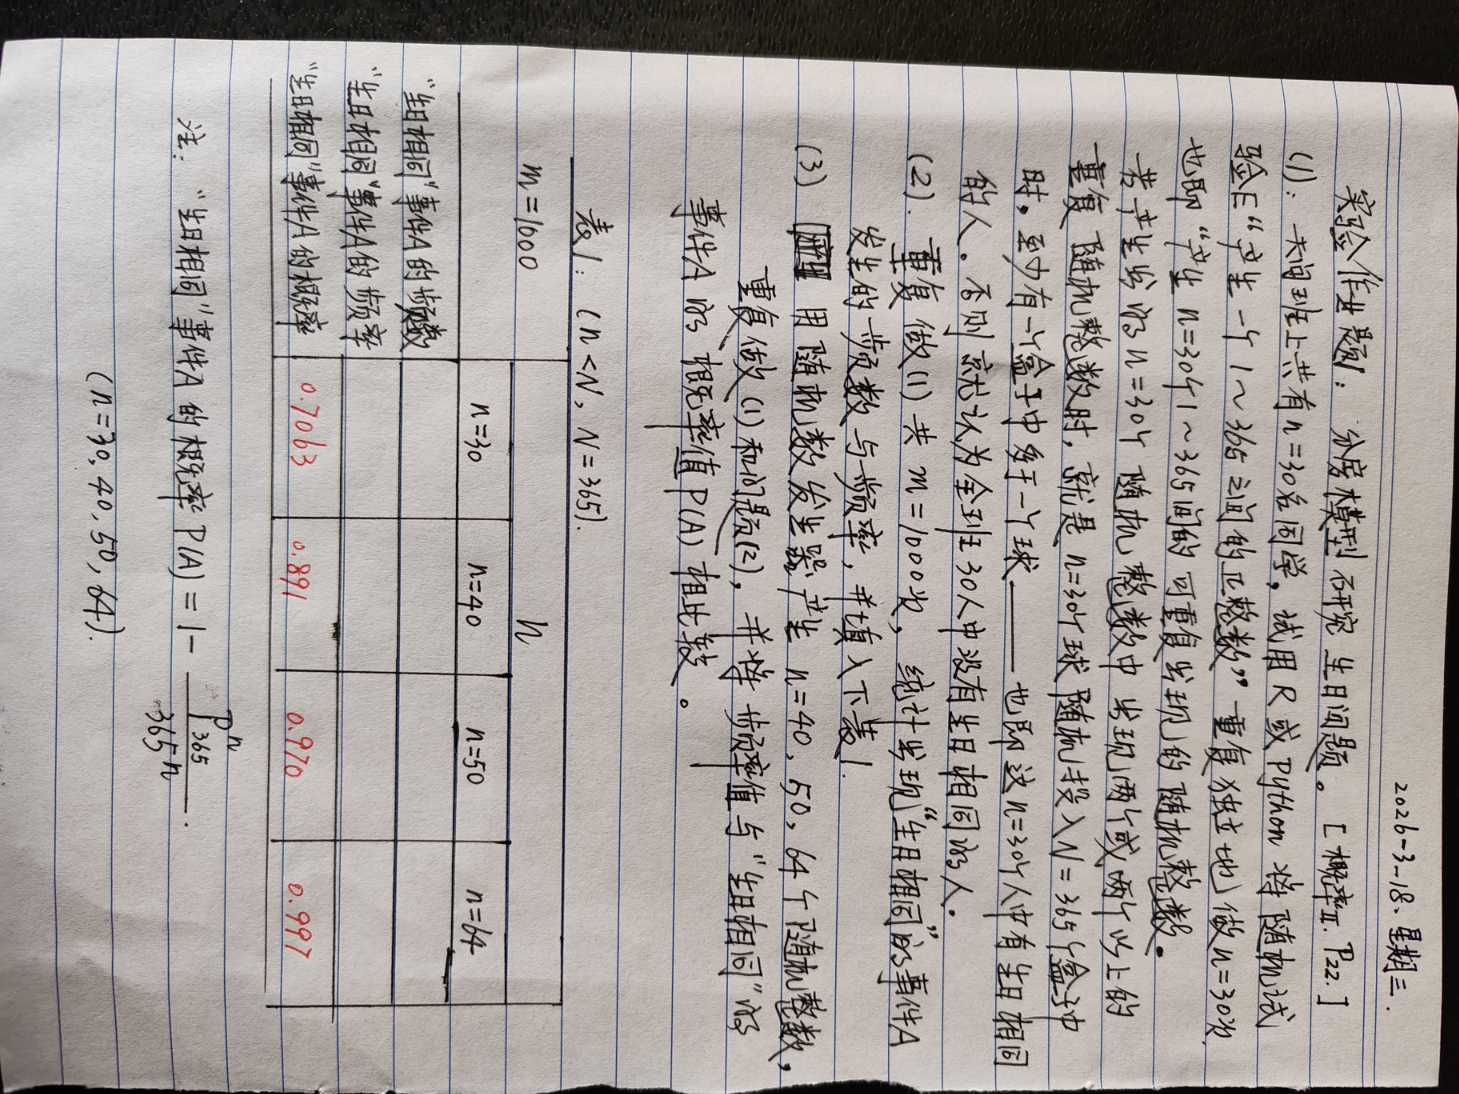 2026-3-18、星期三.
实验作业题: 分房模型研究生日问题。[概率II. P22.]
(1): 大间班上共有n=30名同学, 试用R或Python将随机试
验E“产生一个1~365之间的正整数”重复独立地做n=30次
也即“产生n=30个1~365间的可重复出现的随机整数。
若产生出的n=30个随机整数中出现两个或两个以上的
重复随机整数时, 就是n=30个球随机投入N=365个盒子中
时, 至少有一个盒子中多于一个球——也即这n=30个人中有生日相同
的人。否则就认为全班30人中没有生日相同的人.
(2). 重复做(1)共m=1000次, 统计出现“生日相同”的事件A
发生的频数与频率, 并填入下表1.
(3) 用随机数发生器产生n=40, 50, 64个随机整数,
重复做(1)和问题(2), 并将频率值与“生日相同”的
事件A的概率值P(A)相比较。
表1: (n<N, N=365).
m=1000 n
n=30 n=40 n=50 n=64
“生日相同”事件A的频数
“生日相同”事件A的频率
“生日相同”事件A的概率 0.7063 0.891 0.970 0.997
注: “生日相同”事件A的概率P(A)=1-\frac{P_{365}^{n}}{365^{n}}.
(n=30, 40, 50, 64).